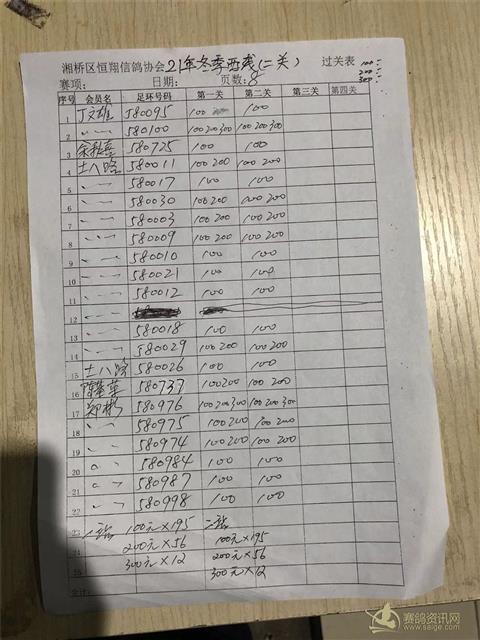 湘桥区恒翔信鸽协会21年冬季西线(二关) 过关表 100=
200=
300=
赛项： 日期： 页数：8
序号 会员名 足环号码 第一关 第二关 第三关 第四关
1 丁文雄 580095 100 100
2 580100 100 200 300 100 200 300
3 580725 100 100
4 士八路 580011 100 200 100 200
5 580017 100 100
6 580030 100 200 100 200
7 580003 100 200 100 200
8 580009 100 200 100 200
9 580010 100 100
10 580021 100 100
11 580012 100 100
12
13 580018 100 100
14 580029 100 200 100 200
15 士八路 580026 100 100
16 580737 100 200 100 200
17 郑彬 580976 100 200 300 100 200 300
18 580975 100 200 100 200
19 580974 100 200 100 200
20 580984 100 100
21 580987 100 100
22 580998 100 100
23 一站 100元×195 二站 100元×195
24 200元×56 200元×56
25 300元×12 300元×12
合计：
赛鸽资讯网
www.saige.com